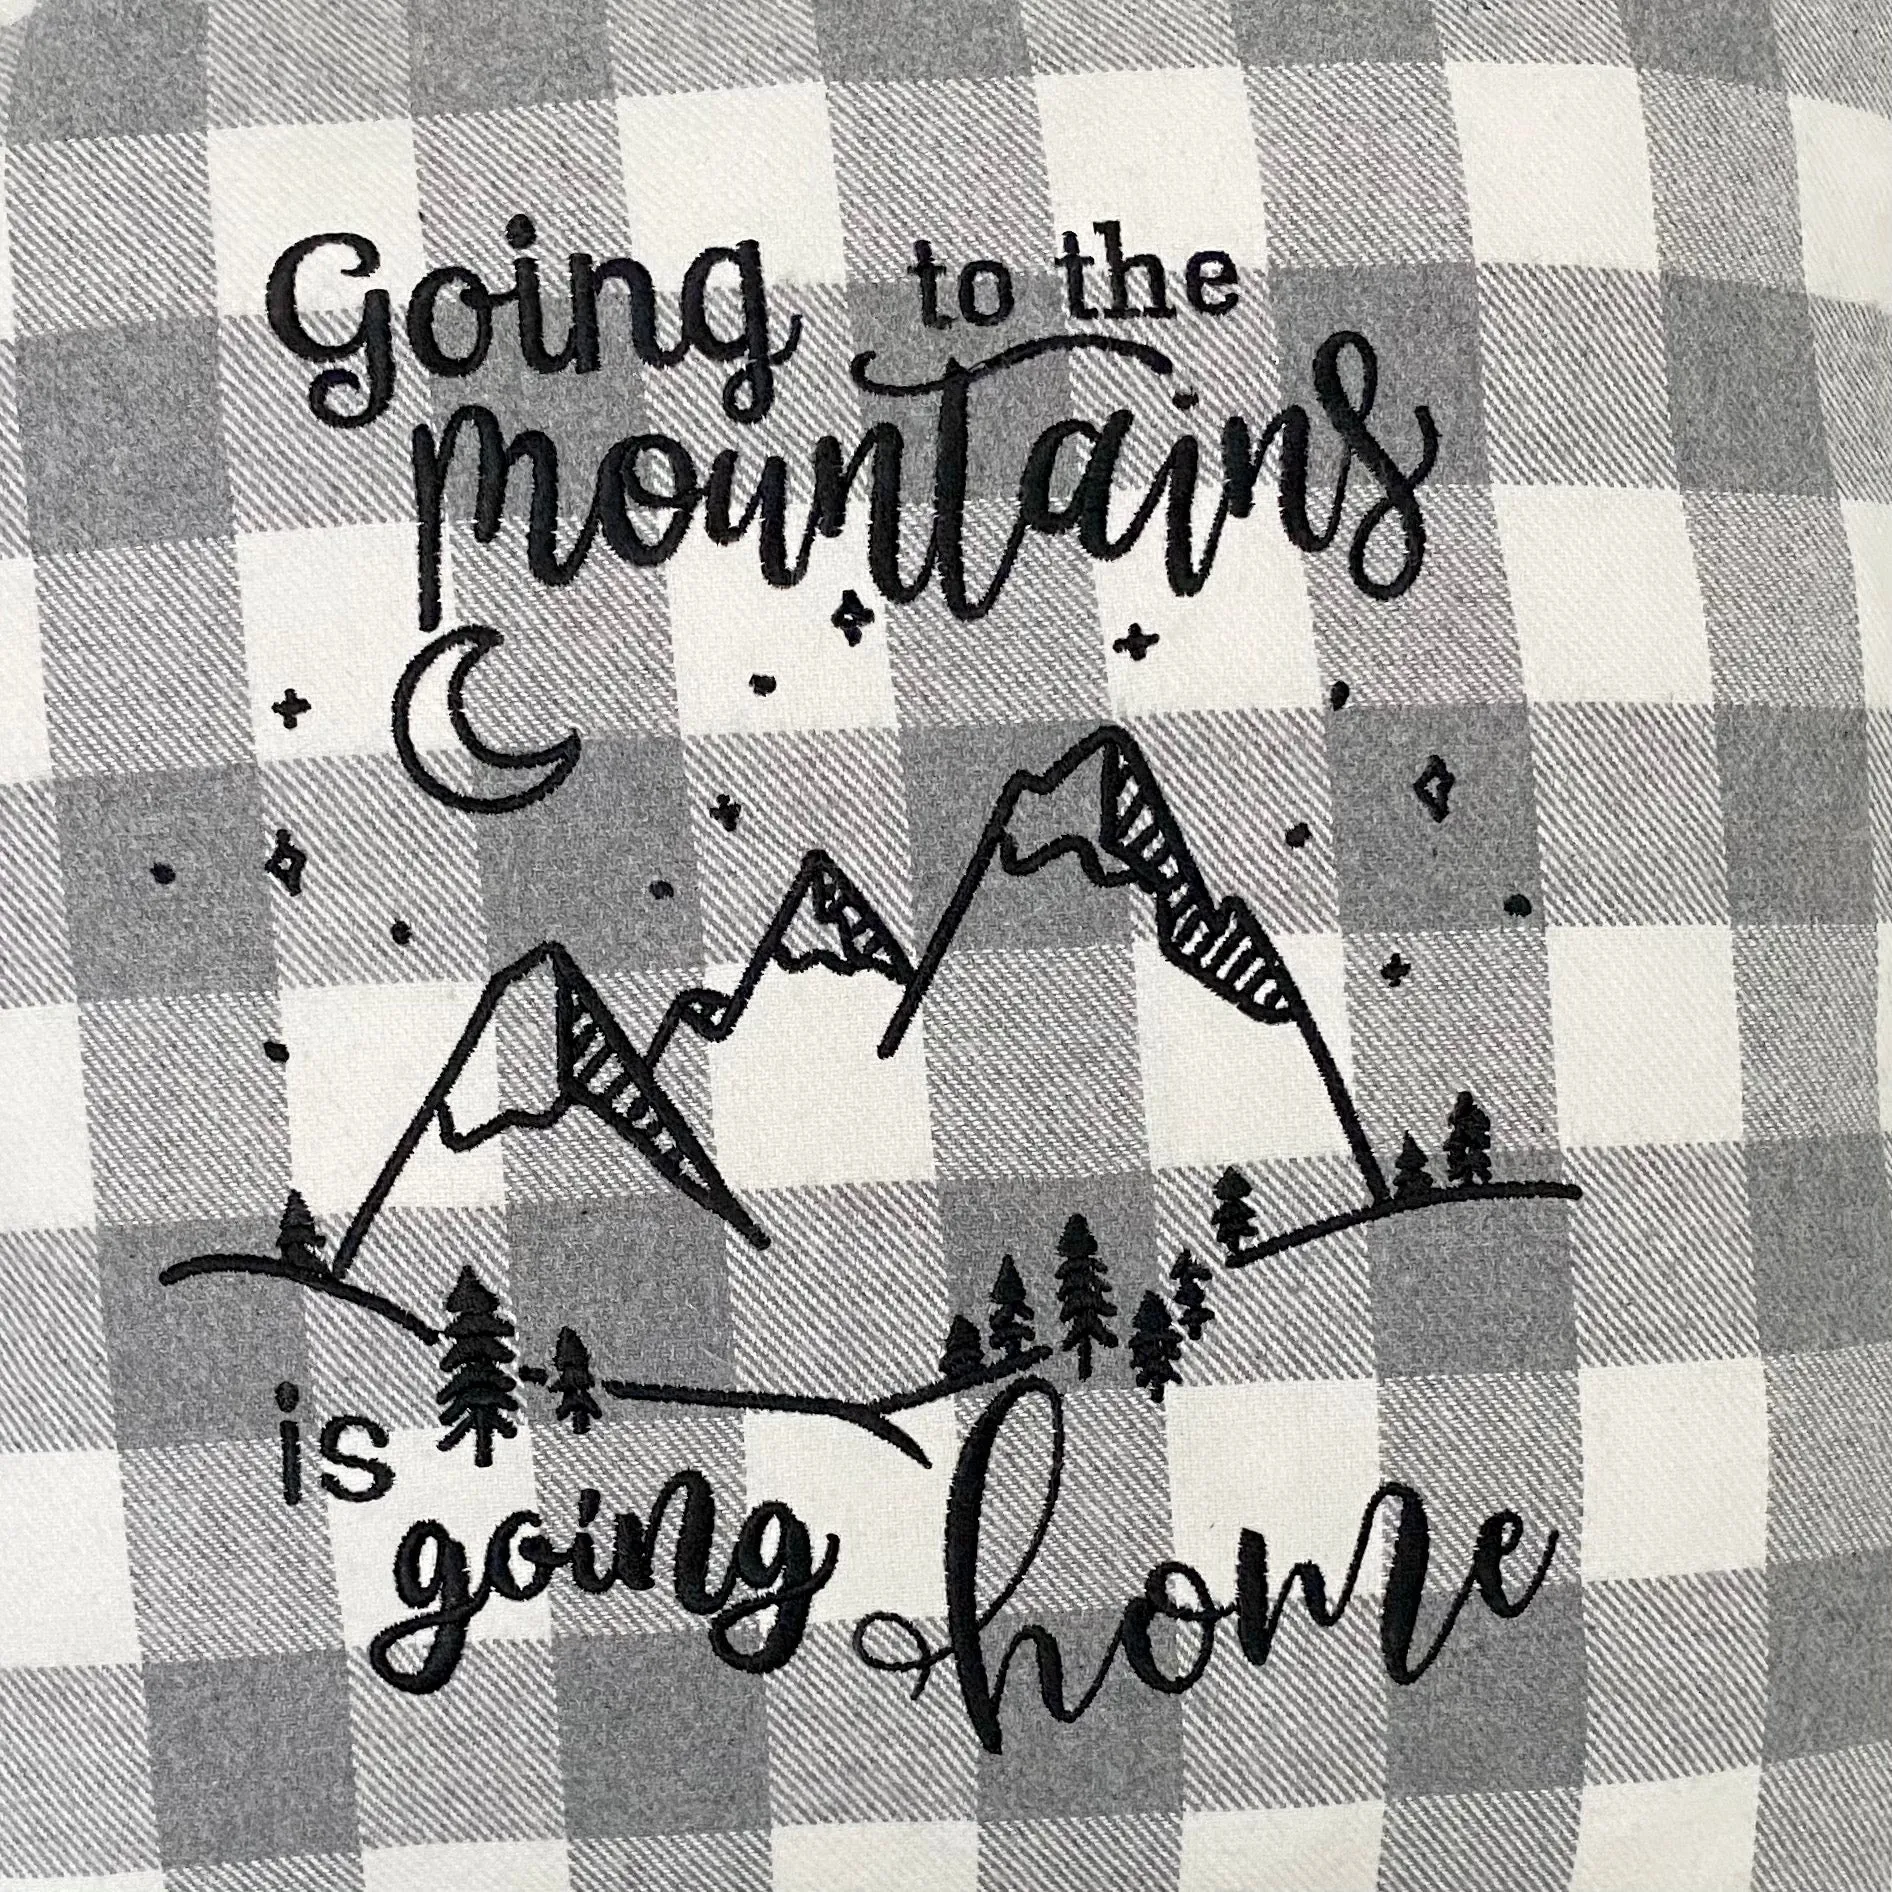 Going to the
mountains
is
going home